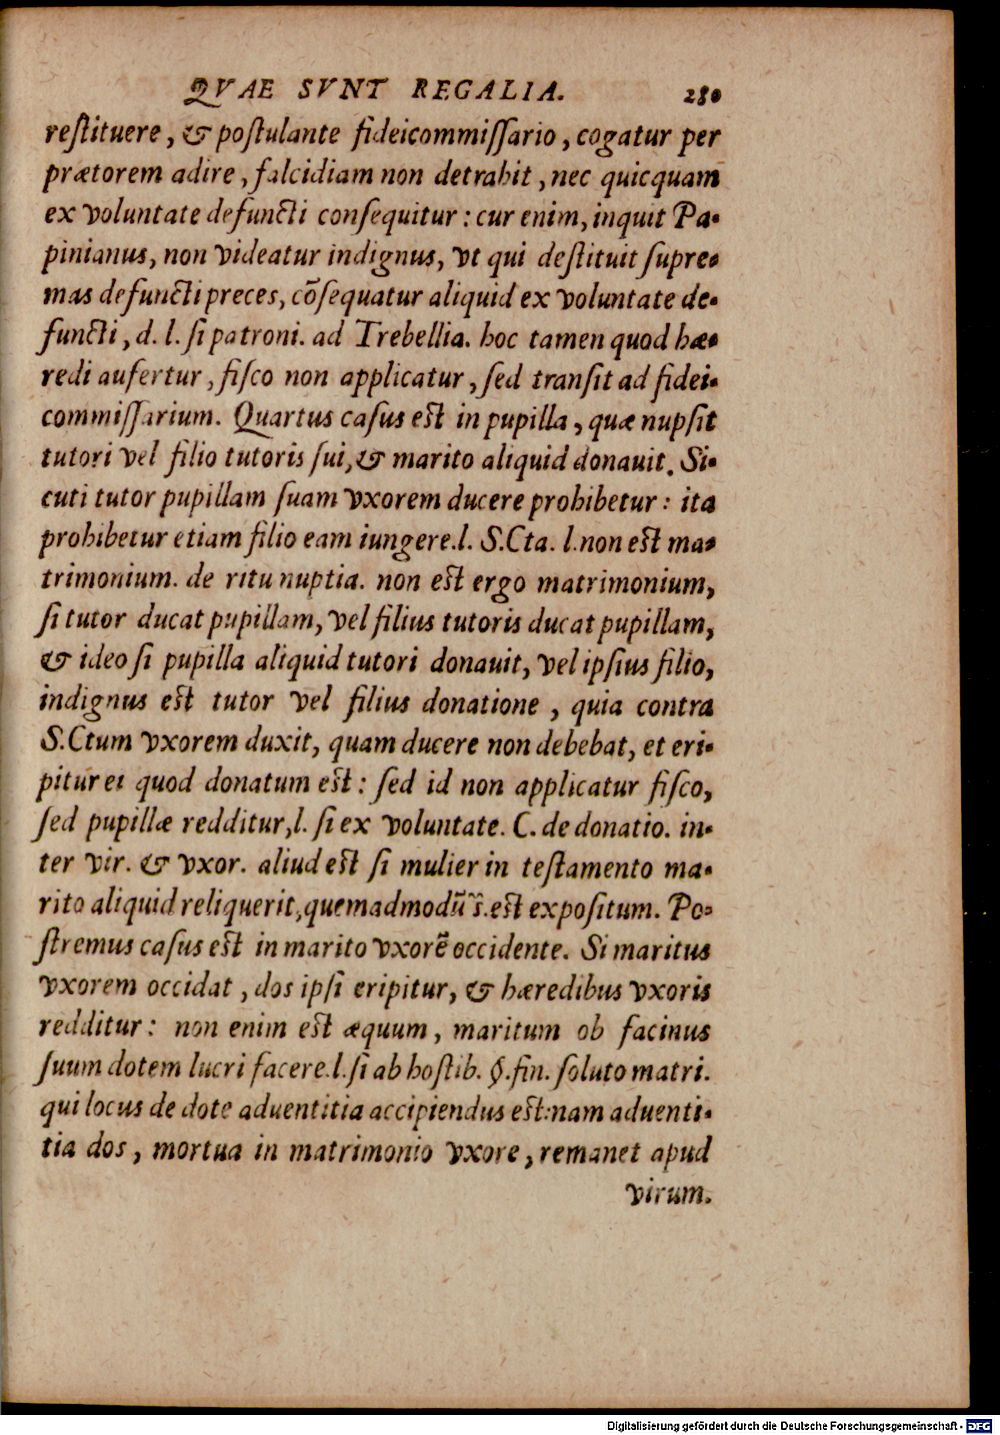 QVAE SVNT REGALIA. 280
reſtituere, & poſtulante fideicommiſſario, cogatur per
prætorem adire, falcidiam non detrahit, nec quicquam
ex voluntate defuncti conſequitur: cur enim, inquit Pa-
pinianus, non videatur indignus, vt qui deſtituit ſupre-
mas defuncti preces, cõſequatur aliquid ex voluntate de-
functi, d. l. ſi patroni. ad Trebellia. hoc tamen quod hæ-
redi aufertur, fiſco non applicatur, ſed tranſit ad fidei-
commiſſarium. Quartus caſus eſt in pupilla, quæ nupſit
tutori vel filio tutoris ſui, & marito aliquid donauit. Si-
cuti tutor pupillam ſuam vxorem ducere prohibetur: ita
prohibetur etiam filio eam iungere.l. S.Cta. l.non eſt ma-
trimonium. de ritu nuptia. non eſt ergo matrimonium,
ſi tutor ducat pupillam, vel filius tutoris ducat pupillam,
& ideo ſi pupilla aliquid tutori donauit, vel ipſius filio,
indignus eſt tutor vel filius donatione, quia contra
S.Ctum vxorem duxit, quam ducere non debebat, et eri-
pitur ei quod donatum eſt: ſed id non applicatur fiſco,
ſed pupillæ redditur,l. ſi ex voluntate. C. de donatio. in-
ter vir. & vxor. aliud eſt ſi mulier in teſtamento ma-
rito aliquid reliquerit,quemadmodũ s̃.eſt expoſitum. Po-
ſtremus caſus eſt in marito vxorẽ occidente. Si maritus
vxorem occidat, dos ipſi eripitur, & hæredibus vxoris
redditur: non enim eſt æquum, maritum ob facinus
ſuum dotem lucri facere.l.ſi ab hoſtib. §.fin. ſoluto matri.
qui locus de dote aduentitia accipiendus eſt:nam aduenti-
tia dos, mortua in matrimonio vxore, remanet apud
virum.
Digitalisierung gefördert durch die Deutsche Forschungsgemeinschaft - DFG